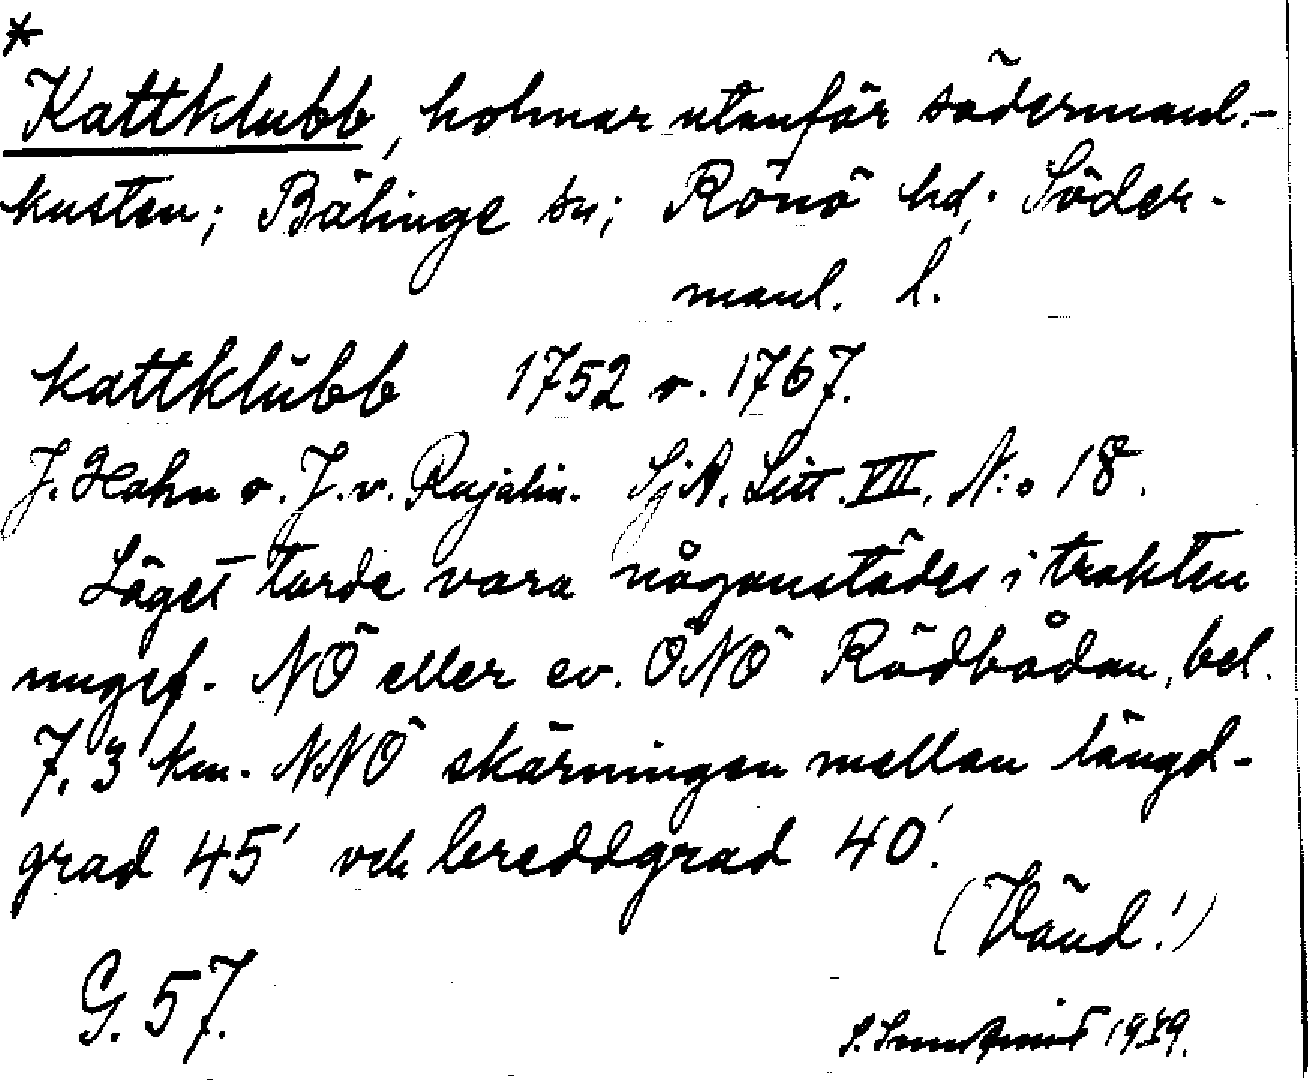 *
Kattklubb, holmar utanför södermanl.-
kusten; Bälinge sn; Rönö hd; Söder-
manl. l.
Kattklubb 1752 o. 1767.
J. Hahn o. J. v. Rajalin. SjA. Litt. VII, N:o 18.
Läget torde vara någonstädes i trakten
ungef. NÖ eller ev. ÖNÖ Rödbådan, bel.
7,3 km. NNÖ skärningen mellan längd-
grad 45' och breddgrad 40'.
(Vänd!)
G. 57.
19